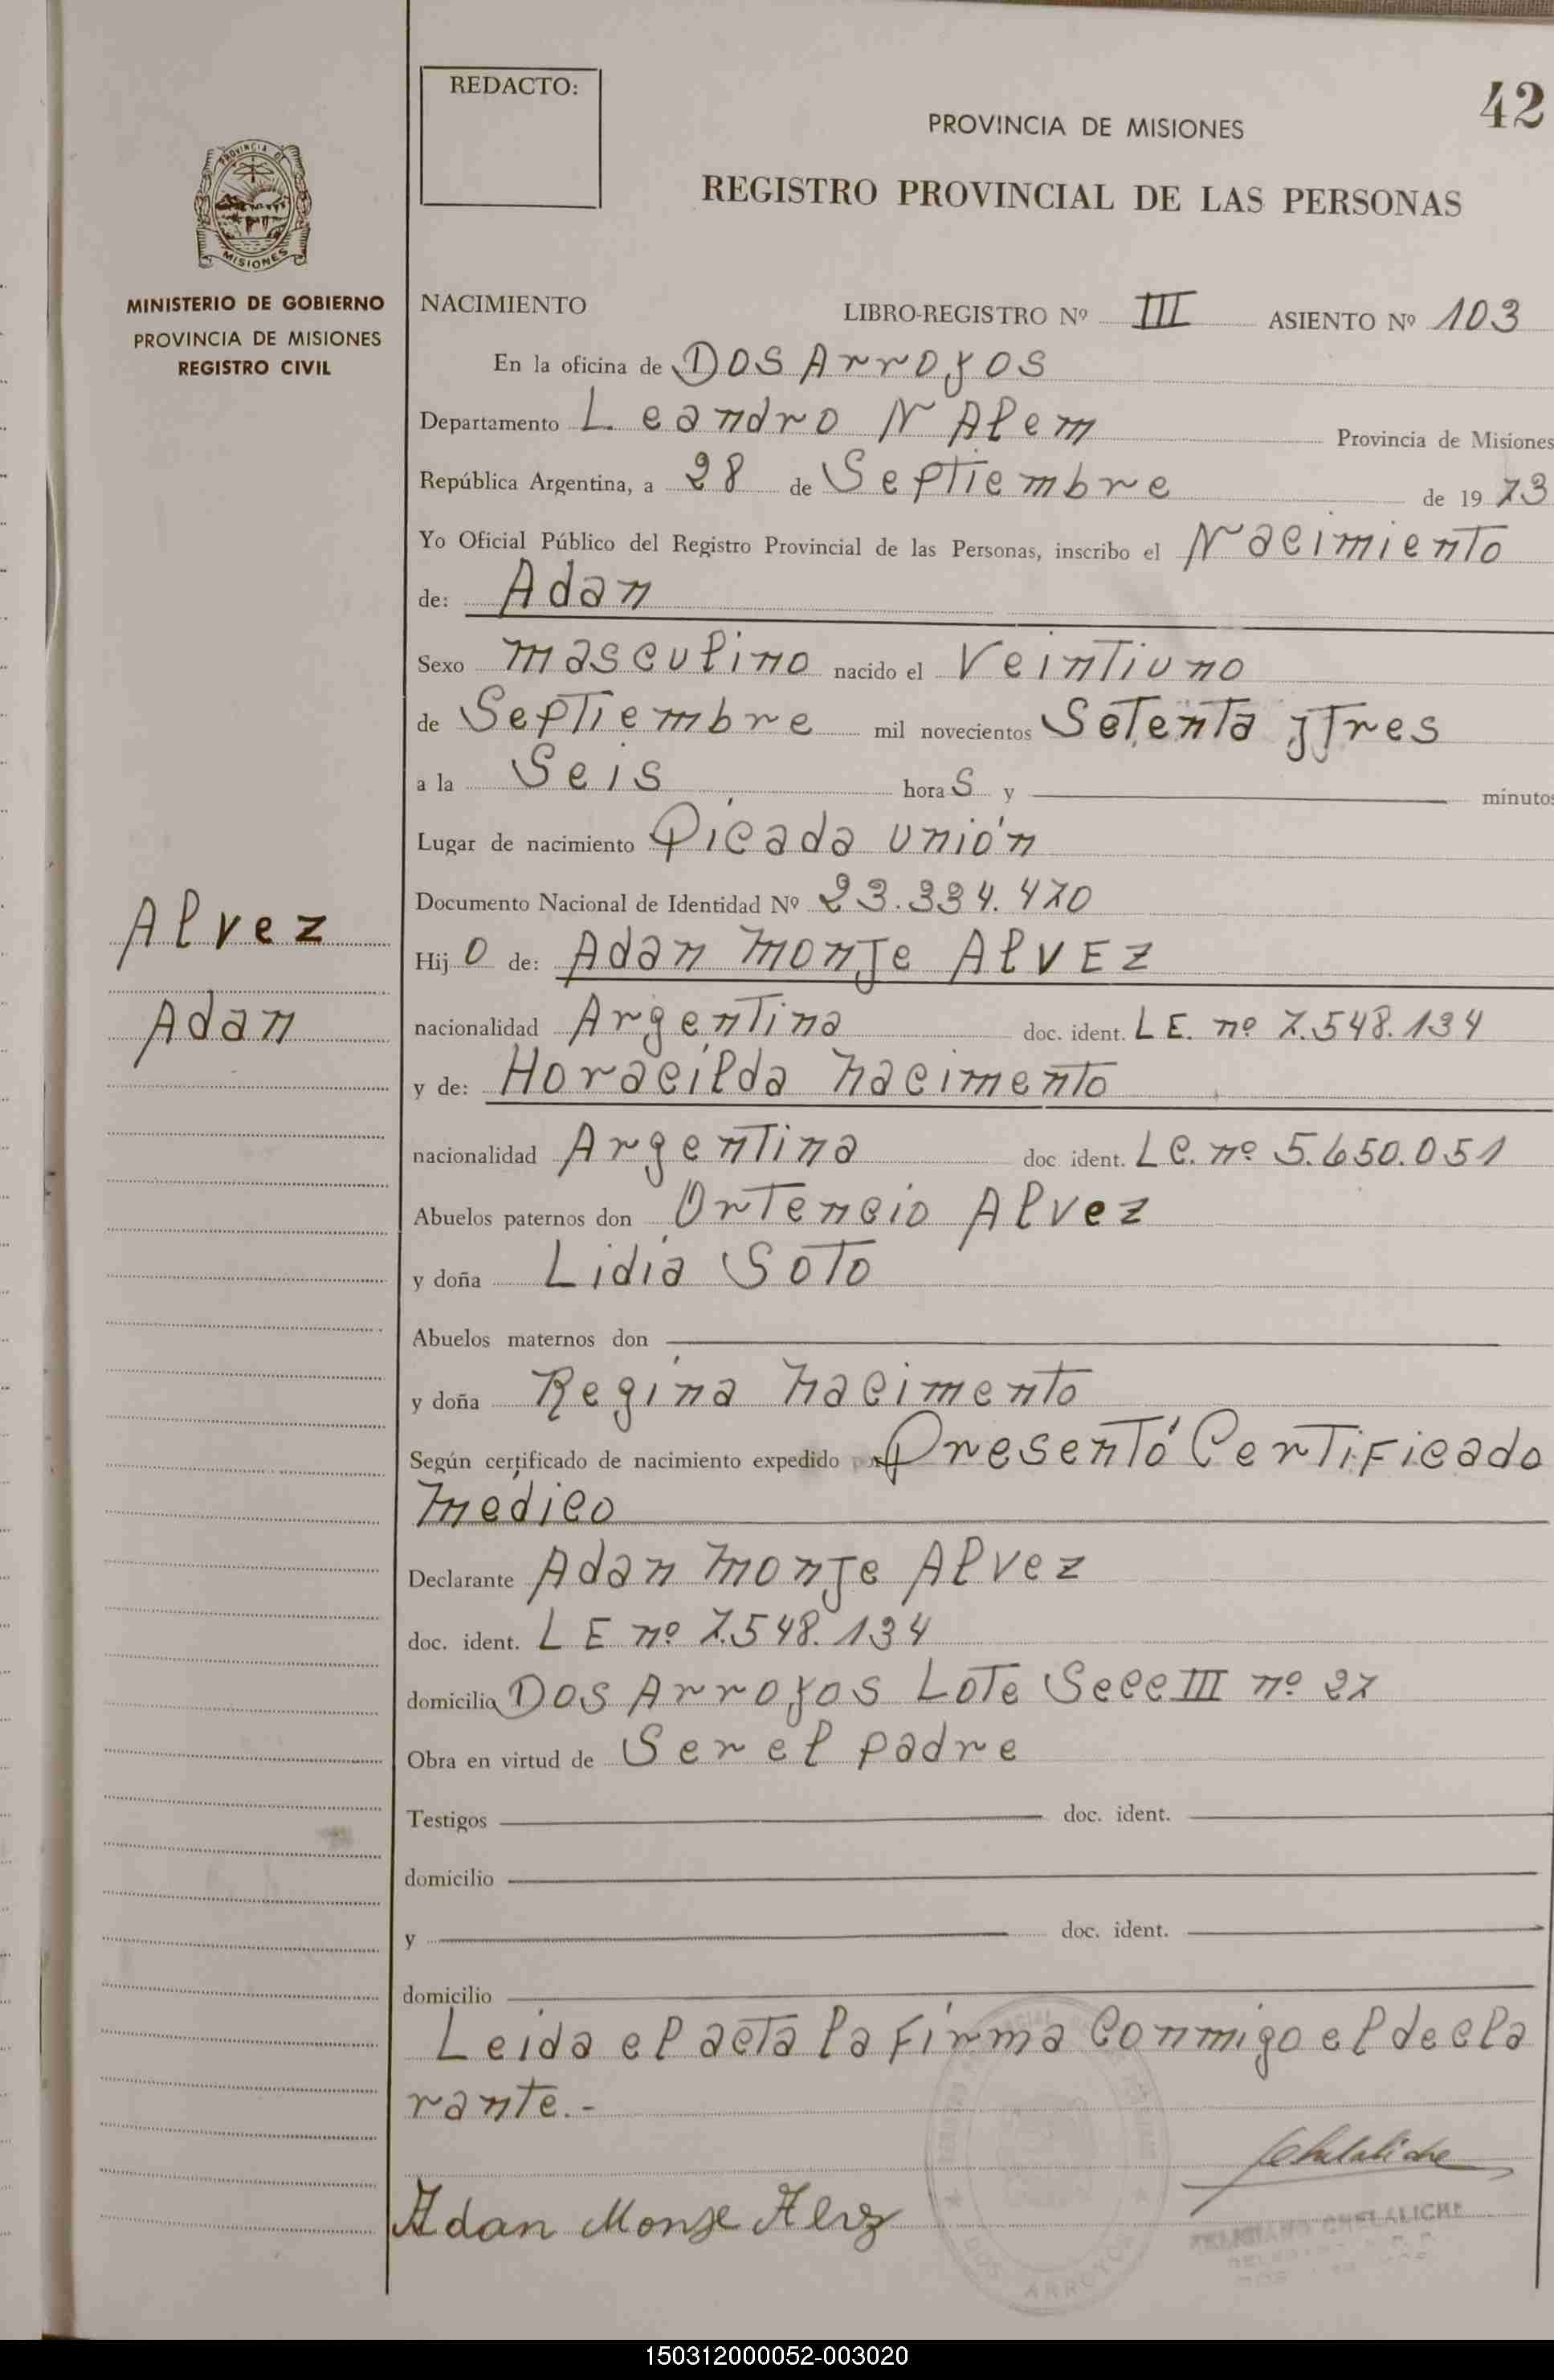 REDACTO:
42
PROVINCIA DE MISIONES
REGISTRO PROVINCIAL DE LAS PERSONAS
PROVINCIA DE
MISIONES
MINISTERIO DE GOBIERNO
PROVINCIA DE MISIONES
REGISTRO CIVIL
NACIMIENTO LIBRO-REGISTRO Nº III ASIENTO Nº 103
En la oficina de Dos Arroyos
Departamento Leandro N Alem Provincia de Misiones
República Argentina, a 28 de Septiembre de 1973
Yo Oficial Público del Registro Provincial de las Personas, inscribo el Nacimiento
de: Adan
Sexo masculino nacido el Veintiuno
de Septiembre mil novecientos Setenta y Tres
a la Seis horas y minutos
Lugar de nacimiento Picada unión
Documento Nacional de Identidad Nº 23.334.470
Alvez
Hijo de: Adan Monje AlvEz
Adan
nacionalidad Argentina doc. ident. L E. nº 7.548.134
y de: Horacilda nacimento
nacionalidad Argentina doc. ident. L C. nº 5.650.051
Abuelos paternos don Ortencio Alvez
y doña Lidia Soto
Abuelos maternos don
y doña Regina nacimento
Según certificado de nacimiento expedido Presentó Certificado
médico
Declarante Adan Monje Alvez
doc. ident. L E nº 7.548.134
domicilio Dos Arroyos Lote Secc III nº 27
Obra en virtud de Ser el padre
Testigos doc. ident.
domicilio
y doc. ident.
domicilio
Leida el acta la firma Conmigo el decla
rante.-
Adan Monje Alvez
CHELALICHE
DOS ARROYOS
150312000052-003020